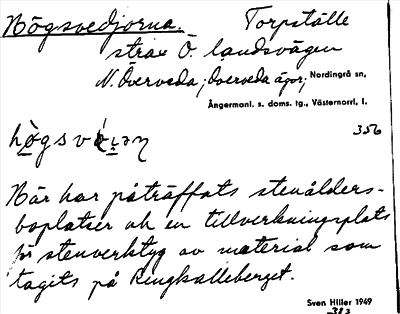 Högsvedjorna. Torpställe
strax Ö. landsvägen
N. Överveda, Överveda ägor, Nordingrå sn,
Ångermanl. s. doms. tg., Västernorrl. l.
356
Här har påträffats stenålders-
boplatser och en tillverkningsplats
för stenverktyg av material som
tagits på Ringkalleberget.
Sven Hiller 1949